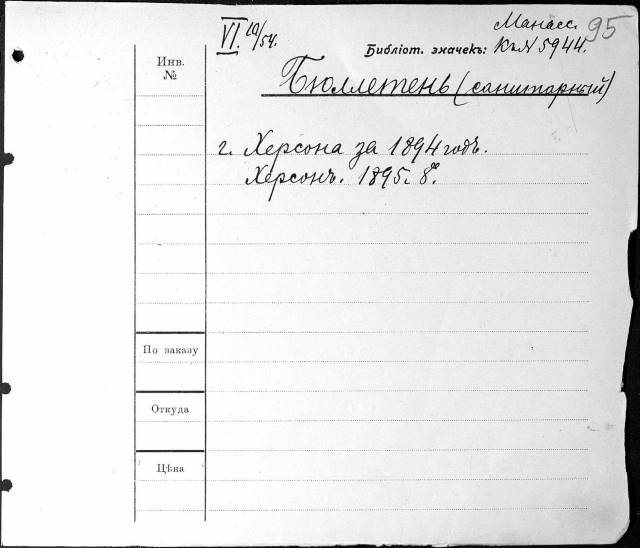 VI. 20/54.
Манасс. 95
Библіот. значекъ: К№ 5944.
Инв.
№
Бюллетень (санитарный)
г. Херсона за 1894 годъ.
Херсонъ. 1895. 8°.
По заказу
Откуда
Цѣна